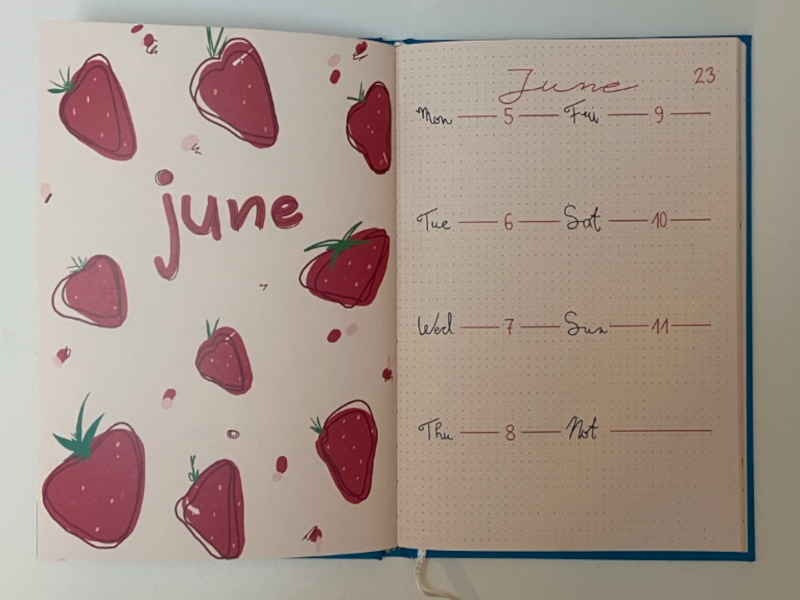 june
June 23
Mon 5 Fri 9
Tue 6 Sat 10
Wed 7 Sun 11
Thu 8 Not